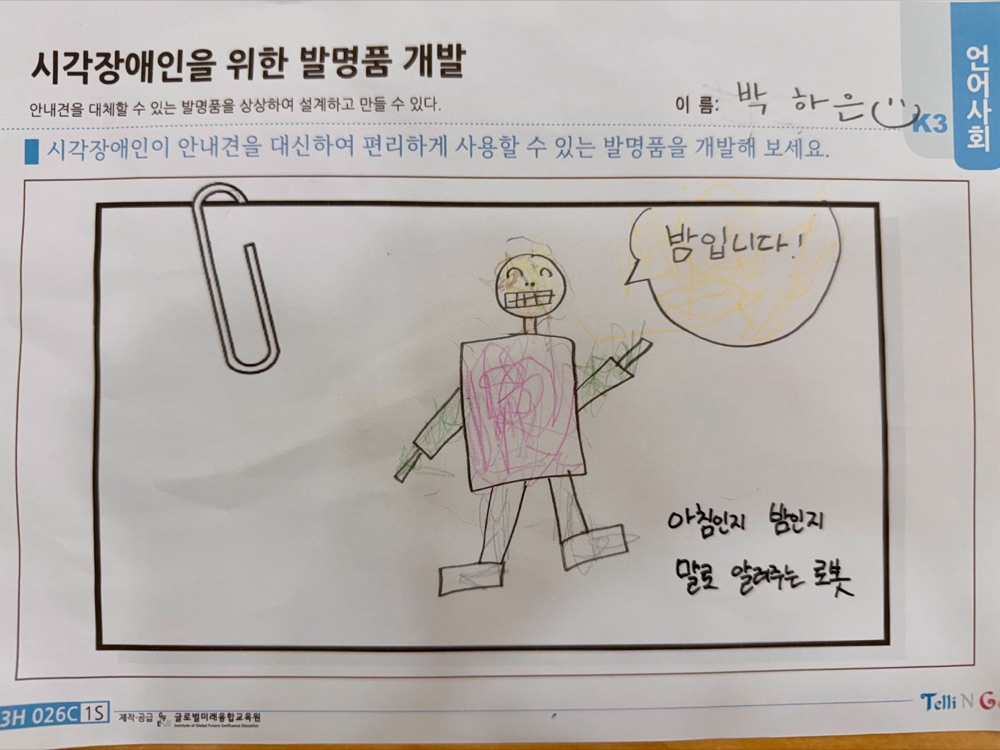 시각장애인을 위한 발명품 개발
안내견을 대체할 수 있는 발명품을 상상하여 설계하고 만들 수 있다.
이 름: 박 하 은
K3
언어사회
시각장애인이 안내견을 대신하여 편리하게 사용할 수 있는 발명품을 개발해 보세요.
밤입니다!
아침인지 밤인지
말로 알려주는 로봇
3H 026C 1S
제작·공급 글로벌미래융합교육원
Institute of Global Future Confluence Education
Telli N